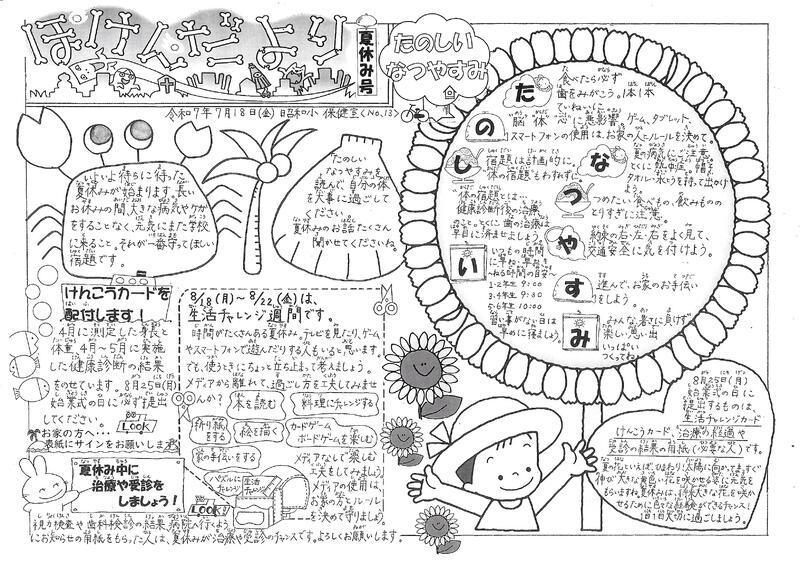 ほけんだより
夏休み号
令和7年7月18日(金) 昭和小 保健室(No.13)
いよいよ待ちに待った
夏休みが始まります。長い
お休みの間、大きな病気やケガ
をすることなく、元気にまた学校
に来ること。それが一番守ってほしい
宿題です。
たのしい
なつやすみを
読んで、自分の体
を大事に過ごして
ください。
夏休みのお話たくさん
聞かせてくださいね。
たのしい
なつやすみ
た
食べたら必ず
歯をみがこう。1本1本
ていねいに
の
脳 体 心に悪影響 ゲーム、タブレット、
スマートフォンの使用は、お家の人とルールを決めて。
し
宿題は計画的に。
体の宿題もわすれずに。
体の宿題とは…
健康診断後の治療
のこと。とくに歯の治療は
早目に済ませましょう。
い
いつもの時間
に早ね・早おき
ねる時間の目安
1・2年生 9:00
3・4年生 9:30
5・6年生 10:00
習い事がない日は
早めに寝ましょう。
な
夏の病気にご注意
とくに熱中症。帽子
タオル・水とうを持って出かけ
よう。
つ
つめたい食べもの、飲みもの
のとりすぎに注意。
や
線路の右・左・右をよく見て、
交通安全に気を付けよう。
す
進んで、お家のお手伝い
をしよう。
み
みんな、暑さに負けず
楽しい思い出
いっぱい
つくってね。
けんこうカードを
配付します!
4月に測定した身長と
体重 4月~5月に実施
した健康診断の結果
をのせています。8月25日(月)
始業式の日に必ず提出
してください。
LOOK
お家の方へ…
表紙にサインをお願いします
8/18(月)~8/22(金)は、
生活チャレンジ週間です。
時間がたくさんある夏休み。テレビを見たり、ゲーム
やスマートフォンで遊んだりする人もいると思います。
でも、使うときにちょっと立ち止って考えましょう。
メディアから離れて、過ごし方を工夫してみませ
んか?
本を読む
料理にチャレンジする
折り紙
をする
絵を描く
カードゲーム
ボードゲームを楽しむ
家の手伝いをする
パズルに
チャレンジ
生活
チャレンジ
LOOK!
メディアなしで楽しむ
工夫をしてみましょう
メディアの使用は
お家の方とルール
を決めて守りましょう。
夏休み中に
治療や受診を
しましょう!
視力検査や歯科検診の結果、病院へ行くよう
にお知らせの用紙をもらった人は、夏休みが治療や受診のチャンスです。よろしくお願いします。
8月25日(月)
始業式の日に
提出するものは、
生活チャレンジカード
けんこうカード、治療の経過や
受診の結果の用紙(必要な人)です。
夏の花といえば、ひまわり!太陽に向かって、すくすく
伸び、大きな黄色い花を咲かせる姿に元気を
もらいますね。夏休みは、将来大きな花を咲か
せるために色々な経験ができるチャンス!
1日1日大切に過ごしましょう。